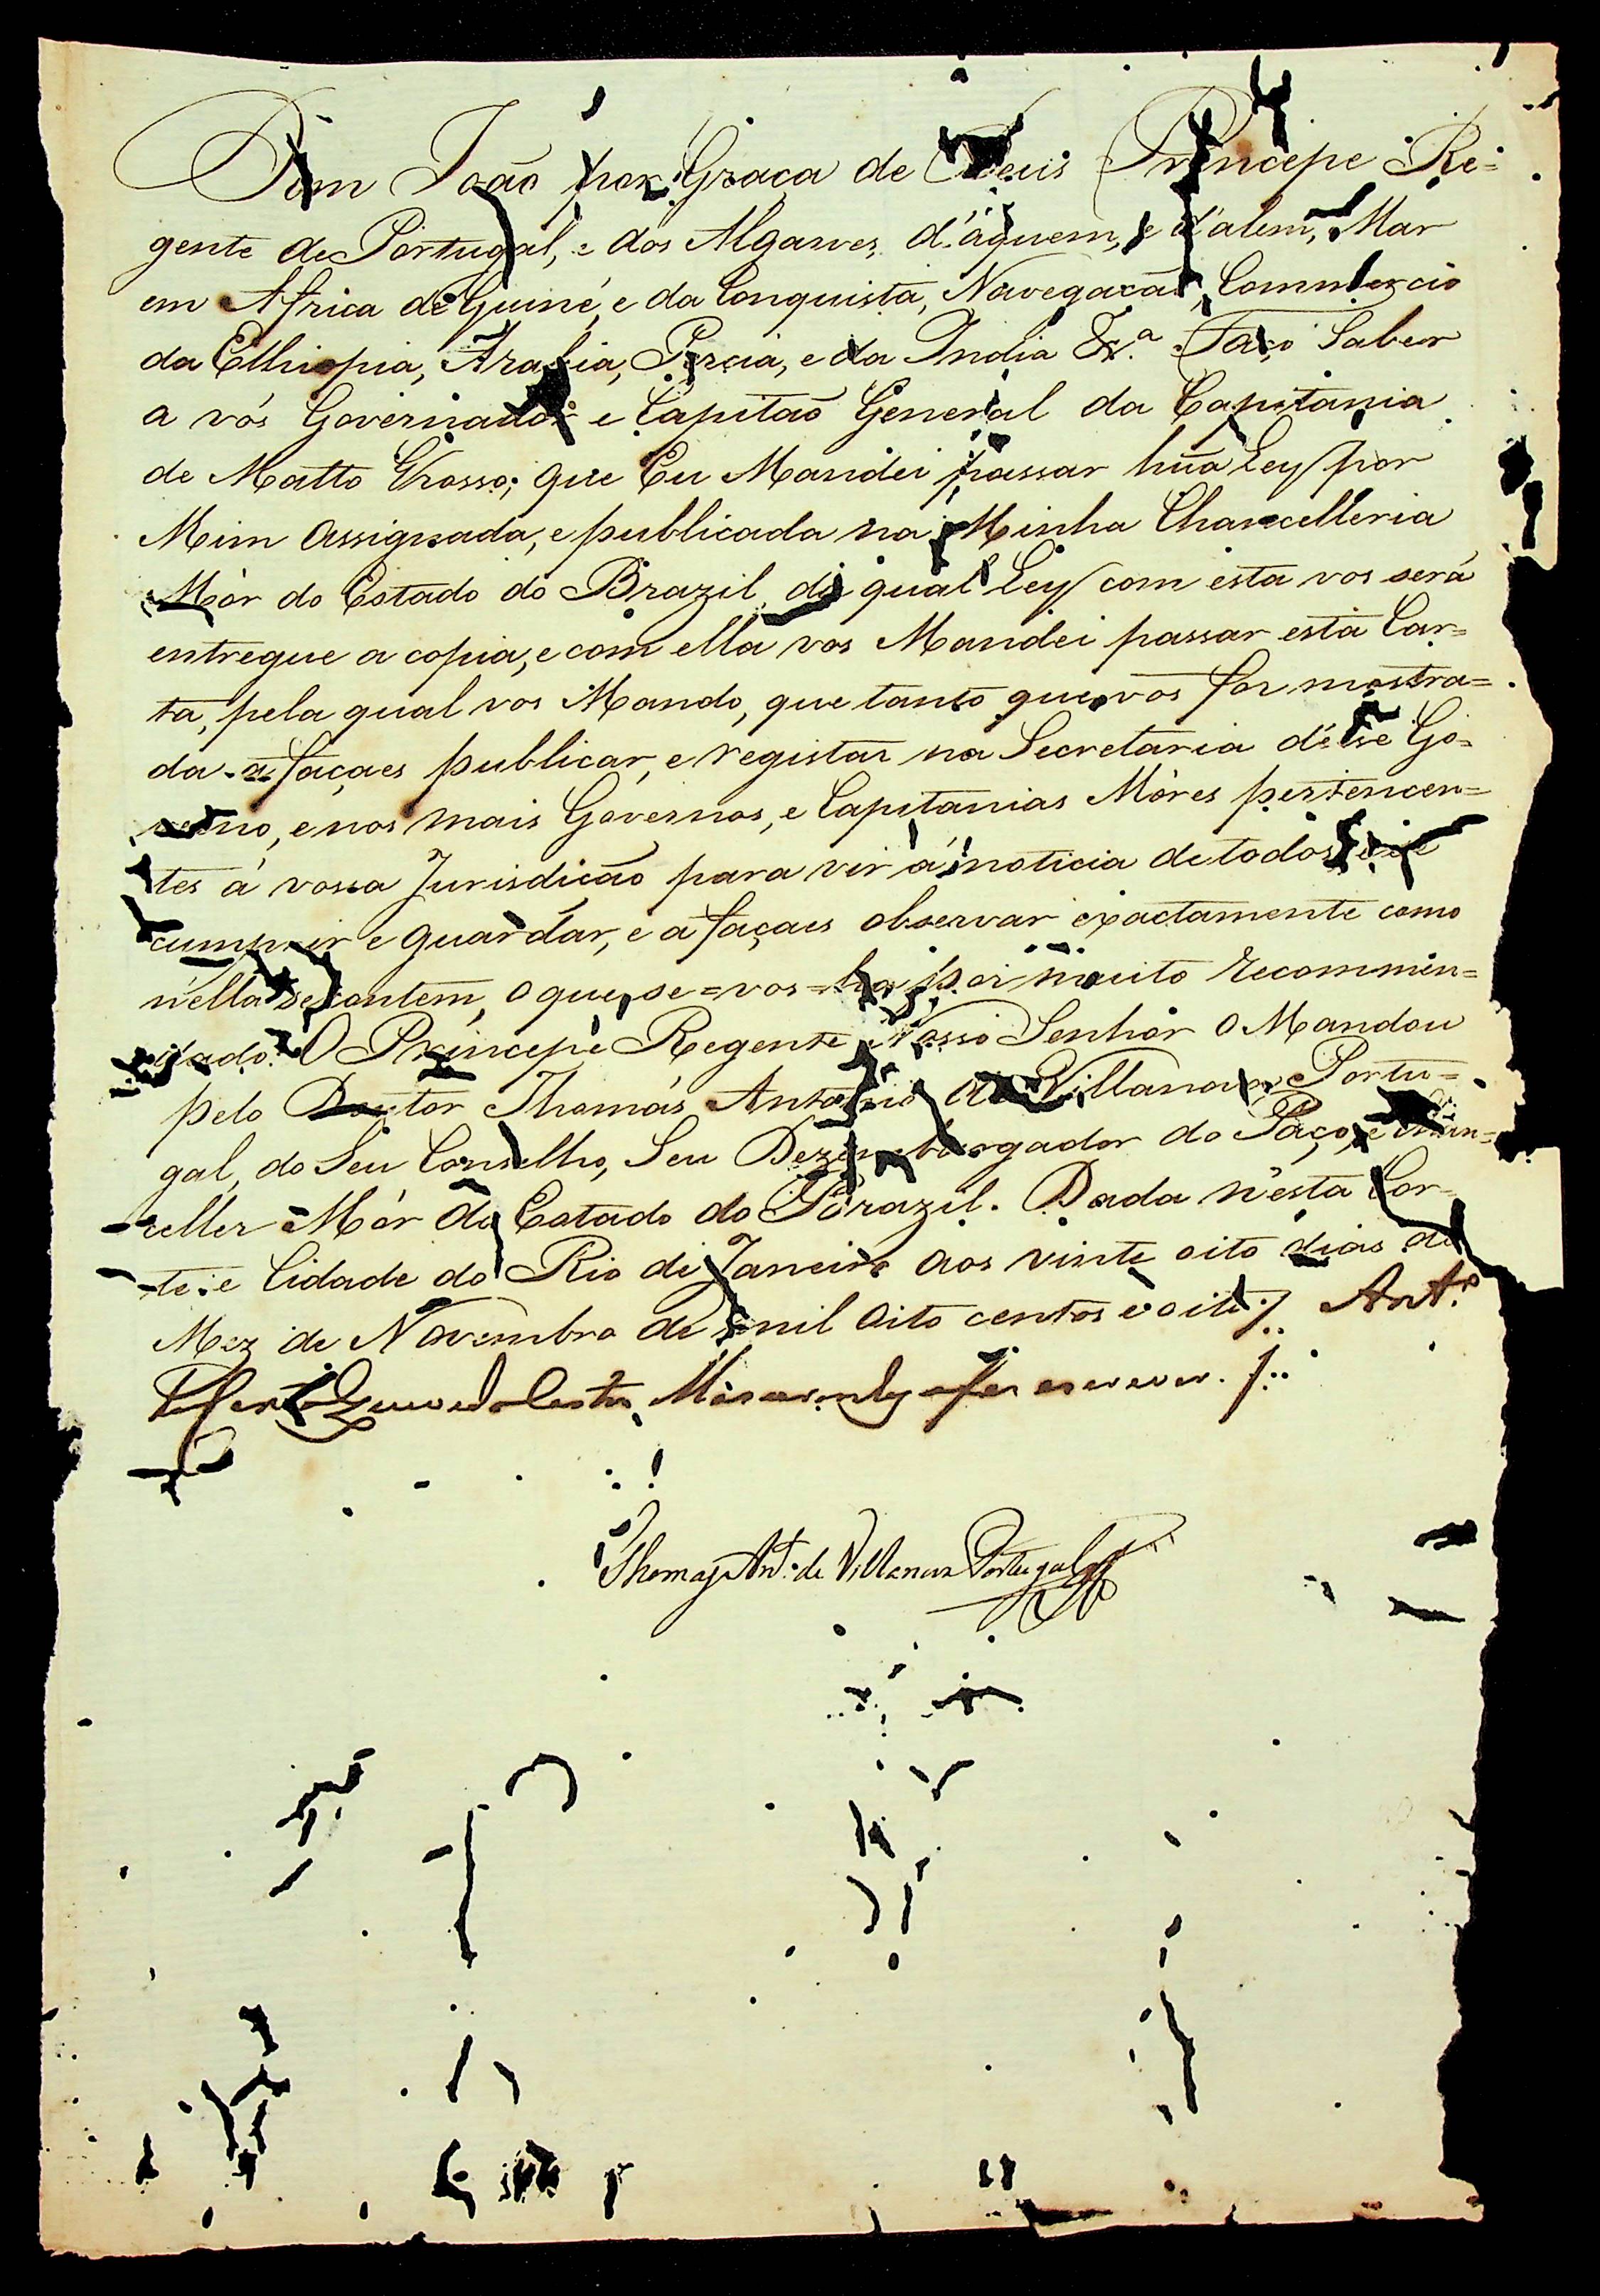 Dom João por Graça de Deus Principe Re=
gente de Portugal, e dos Algarves, d'aquem, e d'alem, Mar
em Africa de Guiné, e da Conquista, Navegação, Commercio
da Ethiopia, Arabia, Percia, e da India &.ª Faço Saber
a vós Governador e Capitaõ General da Capitania
de Matto Grosso; que Eu Mandei passar huã Ley por
Mim assignada, e publicada na Minha Chancelleria
Mór do Estado do Brazil da qual Ley com esta vos será
entregue a copia, e com ella vos Mandei passar esta Car=
ta, pela qual vos Mando, que tanto que vos for mostra=
da a façaes publicar, e registar na Secretaria d'esse Go=
verno, e nos mais Governos, e Capitanias Móres pertencen=
tes á vossa Jurisdicão para vir á noticia de todos
cumprir e guardar, e a façaes observar exactamente como
n'ella se contem, o que se=vos=ha por muito recommen=
dado. O Principe Regente Nosso Senhor o Mandou
pelo Doutor Thomás Antonio de Villanova Portu=
gal, do Seu Conselho, Seu Dezembargador do Paço, e Chan=
celler Mór do Estado do Brazil. Dada n'esta Cor=
te e Cidade do Rio de Janeiro aos vinte oito dias do
Mez de Novembro de mil oito centos e oito. Ant.º
a fez escrever.
Thomaz Ant.º de Villanova Portugal